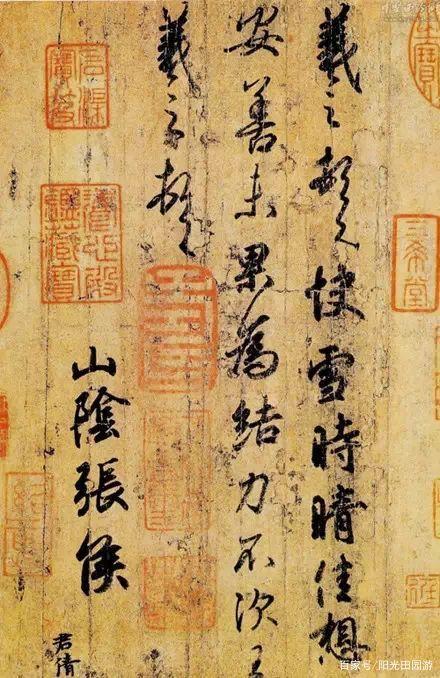 羲之頓首快雪時晴佳想
安善未果為結力不次王
羲之頓首
山陰張侯
君倩
三希堂
石渠寶笈
養心殿鑑藏寶
百家号/阳光田园游